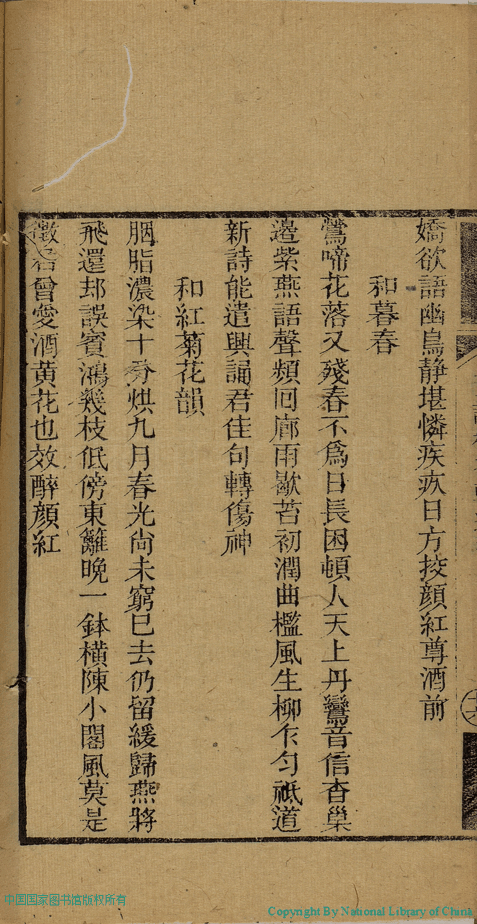 嬌欲語幽鳥静堪憐疾疚日方挍顏紅尊酒前
和暮春
鶯啼花落又殘春不爲日長困頓人天上丹鸞音信杳巢
邉紫燕語聲頻囘廊雨歇苔初潤曲檻風生柳乍匀祗道
新詩能遣興誦君佳句轉傷神
和紅菊花韻
胭脂濃染十分烘九月春光尙未窮巳去仍留緩歸燕將
飛還却誤賓鴻幾枝低傍東籬晩一鉢橫陳小閣風莫是
徵君曾愛酒黄花也效醉顏紅
中国国家图书馆版权所有
Copyright By National Library of China